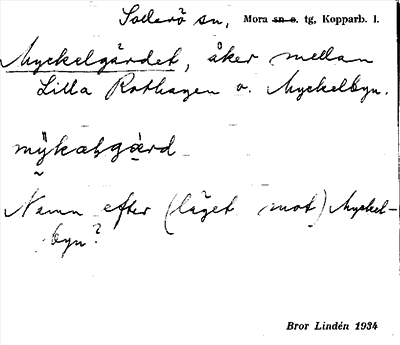 Sollerö sn, Mora sn o. tg, Kopparb. l.
Myckelgärdet, åker mellan
Lilla Rothagen o. Myckelbyn.
mykæłgærd
Namn efter (läget mot) Myckel-
byn?
Bror Lindén 1934